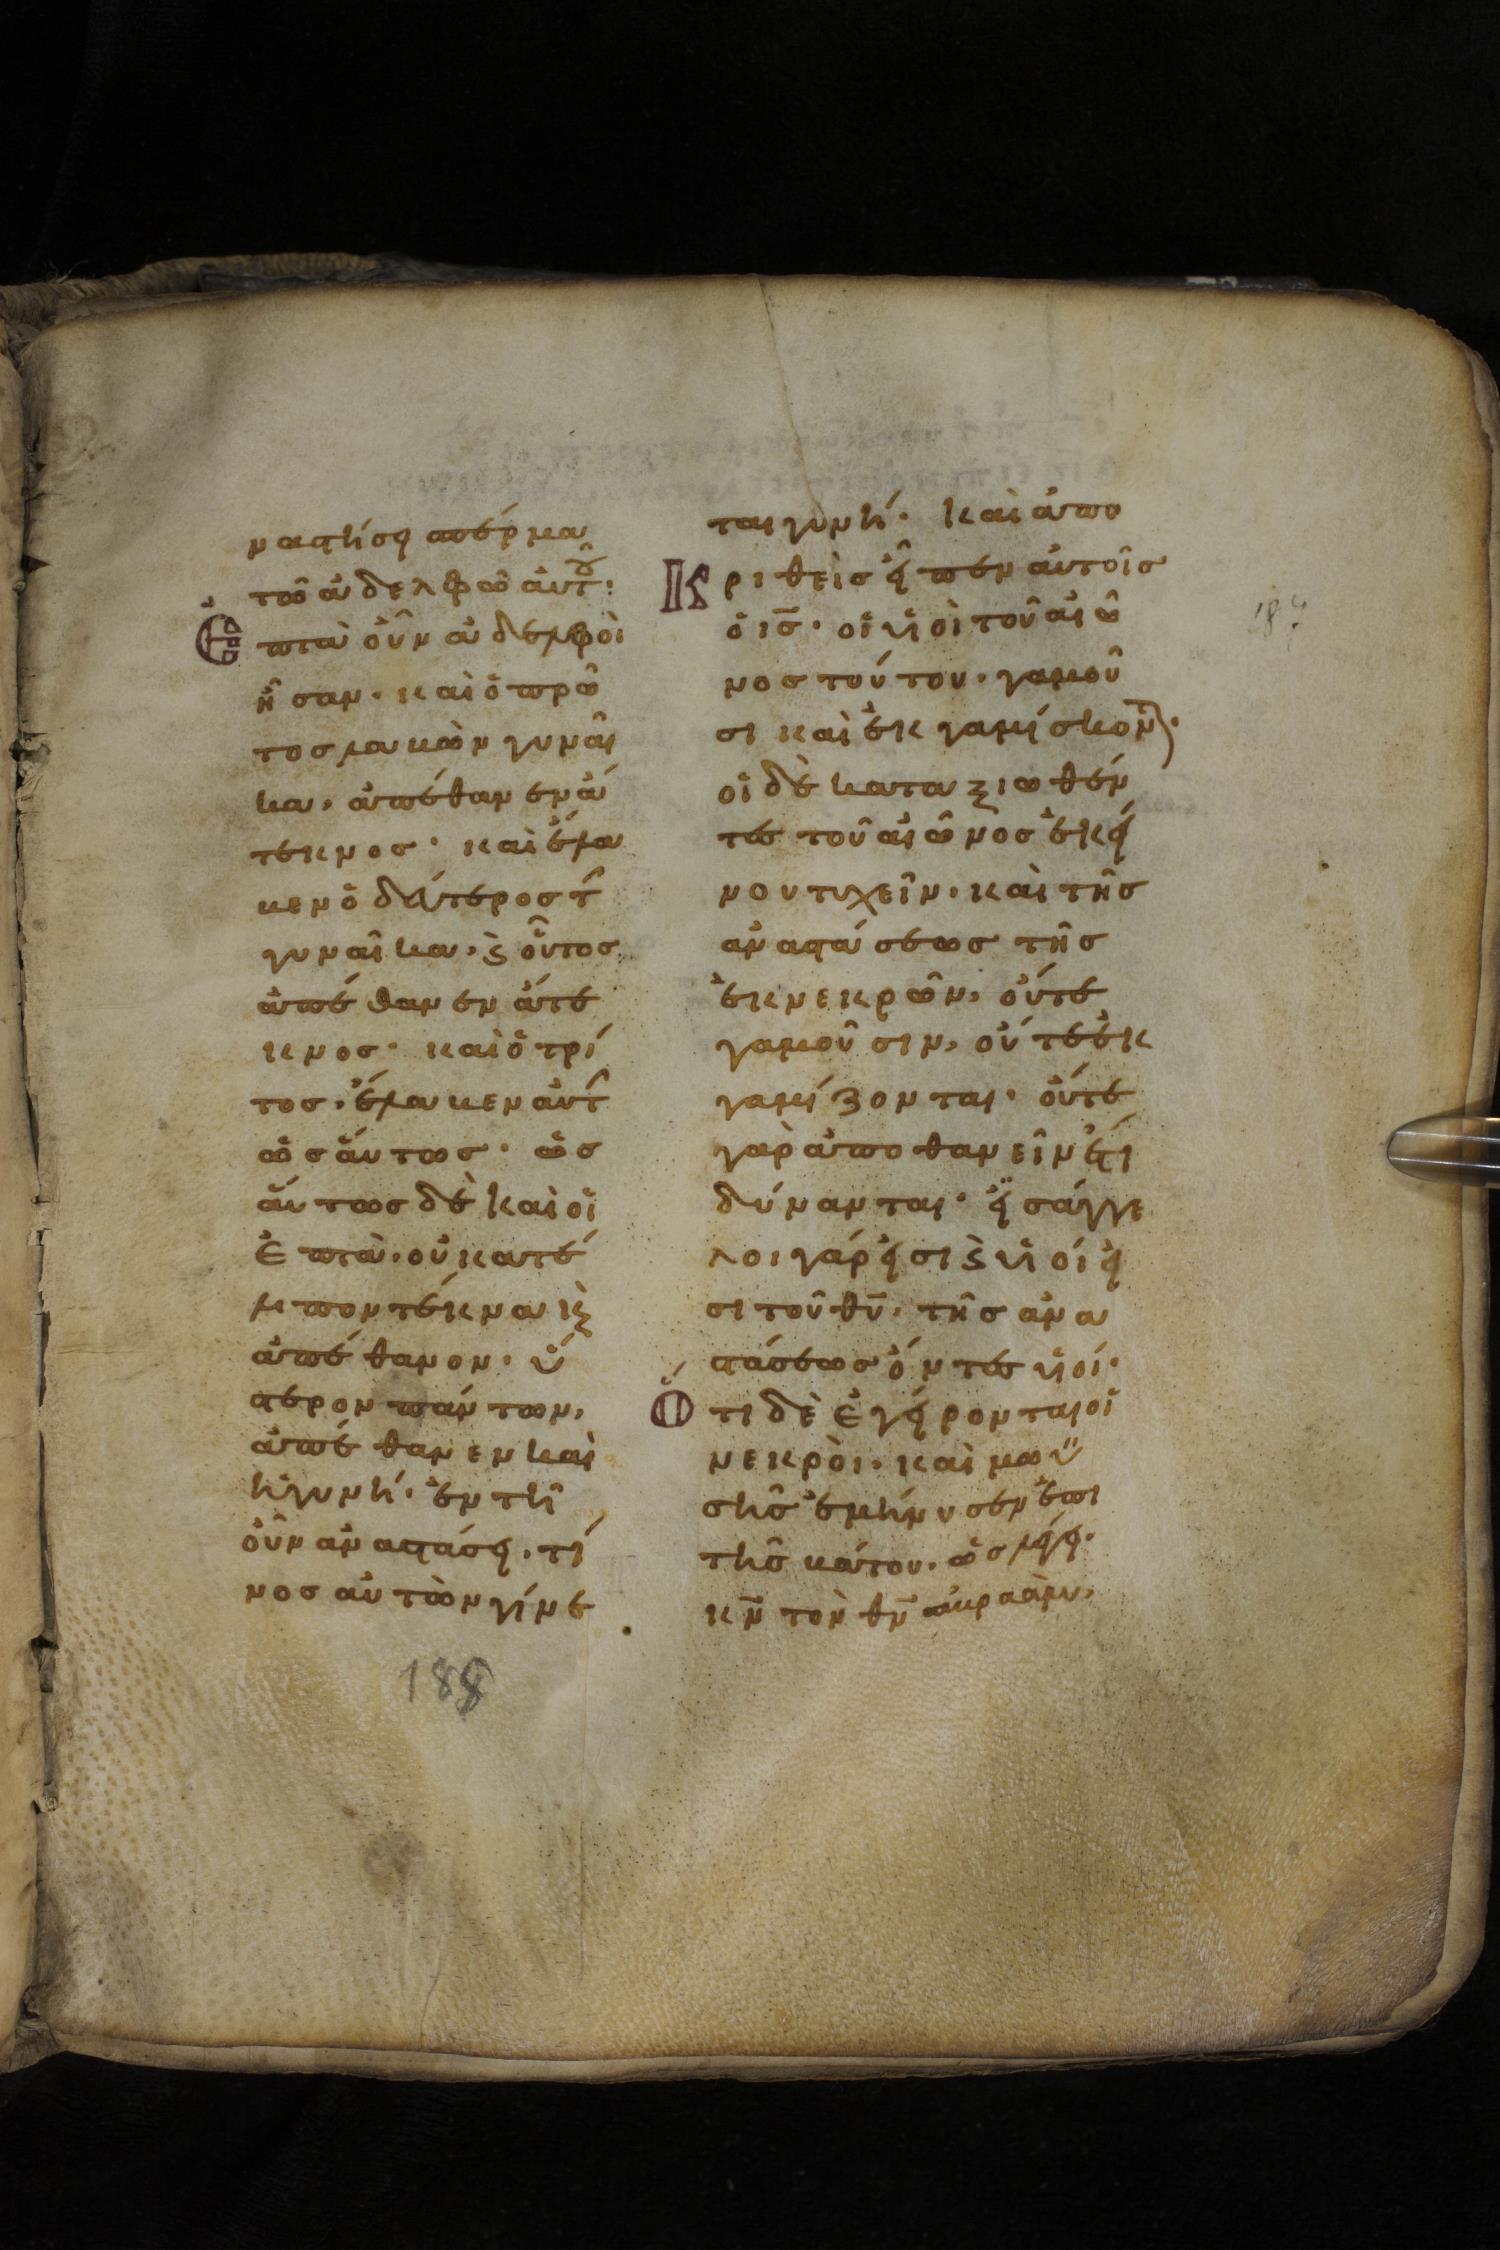 ναστήσει σπέρμα
τῶ ἀδελφῶ ἀυτοῦ:
Ἑπτὰ οὖν ἀδελφὸι
ἦσαν· καὶ ὁ πρῶ
τος λαβὼν γυναῖ
κα, ἀπέθανεν ἄ
τεκνος· καὶ ἔλα
βεν ὁ δεύτερος τ̂
γυναῖκα, ϛ̀ οὗτος
ἀπέθανεν ἄτε
κνος· καὶ ὁ τρί
τος, ἔλαβεν ἀυτ̂
ὡσάυτως· ὡσ
άυτως δὲ καὶ οἱ
ἑπτὰ, οὐ κατέ
λιπον τέκνα κ̣
ἀπέθανον· ὕ
στερον πάντων,
ἀπέθανεν καὶ
ἡ γυνή· ἐν τῆ
οὖν ἀναστάσει, τί
νος αὐτὼν γίνε
ται γυνή· καὶ ἀπο
Κριθεὶς εἶπεν ἀυτοῖς
ὁ ις̅· οἱ υἱοὶ τοῦ αἰῶ
νος τούτου, γαμοῦ
σι καὶ ἐκγαμίσκοντ̅·
οἱ δὲ καταξιωθέν
τες τοῦ αἰῶνος ἐκεί
νου τυχεῖν, καὶ τῆς
αναστάσεως τῆς
ἐκ νεκρῶν, ὀύτε
γαμοῦσιν, οὔτε ἐκ
γαμίζονται· ὀύτε
γὰρ ἀποθανεῖν ἔτι
δύνανται· ἰσάγγε
λοι γάρ εἰσι ϛ̀ υἱοί εἰ
σι τοῦ θυ̅, τῆς ανα
στάσεως ὄντες υἱοί·
Ὅτι δὲ ἐγείρονται οἱ
νεκρὸι, καὶ μωϋ
σῆς ἐμήνυσεν ἐπι
τῆς βάτου, ὡς λέγει·
κν̅ τὸν θν̅ αβραὰμ,
188
187